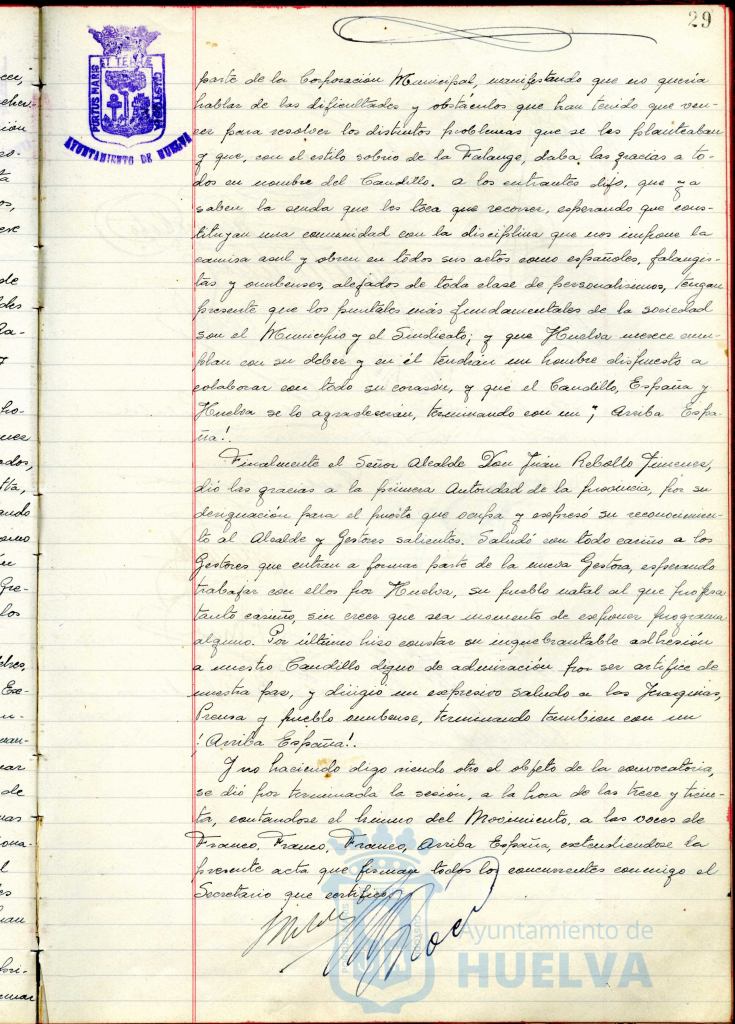 29
PORTUS MARIS ET TERRÆ CUSTODIA
AYUNTAMIENTO DE HUELVA
parte de la Corporación Municipal, manifestando que no quería
hablar de las dificultades y obstáculos que han tenido que ven-
cer para resolver los distintos problemas que se les planteaban
y que, con el estilo sobrio de la Falange, daba las gracias a to-
dos en nombre del Caudillo. A los entrantes dijo, que ya
saben la senda que les toca que recorrer, esperando que cons-
tituyan una comunidad con la disciplina que nos impone la
camisa azul y obren en todos sus actos como españoles, falangis-
tas y onubenses, alejados de toda clase de personalismos, tengan
presente que los puntales más fundamentales de la sociedad
son el Municipio y el Sindicato; y que Huelva merece cum-
plan con su deber y en él tendrán un hombre dispuesto a
colaborar con todo su corazón, y que el Caudillo, España y
Huelva se lo agradecerán, terminando con un ¡Arriba Espa-
ña!.
Finalmente el Señor Alcalde Don Juan Rebollo Jimenez,
dió las gracias a la primera Autoridad de la provincia, por su
designación para el puesto que ocupa y expresó su reconocimien-
to al Alcalde y Gestores salientes. Saludó con todo cariño a los
Gestores que entran a formar parte de la nueva Gestora, esperando
trabajar con ellos por Huelva, su pueblo natal al que profesa
tanto cariño, sin creer que sea momento de exponer programa
alguno. Por último hizo constar su inquebrantable adhesión
a nuestro Caudillo digno de admiración por ser artífice de
nuestra paz, y dirigió un expresivo saludo a las Jerarquias,
Prensa y pueblo onubense, terminando tambien con un
¡Arriba España!.
Y no haciendo digo siendo otro el objeto de la convocatoria,
se dió por terminada la sesión, a la hora de las trece y trein-
ta, cantandose el himno del Movimiento, a las voces de
Franco, Franco, Franco, Arriba España, extendiendose la
presente acta que firman todos los concurrentes conmigo el
Secretario que certifico.
Ayuntamiento de
HUELVA